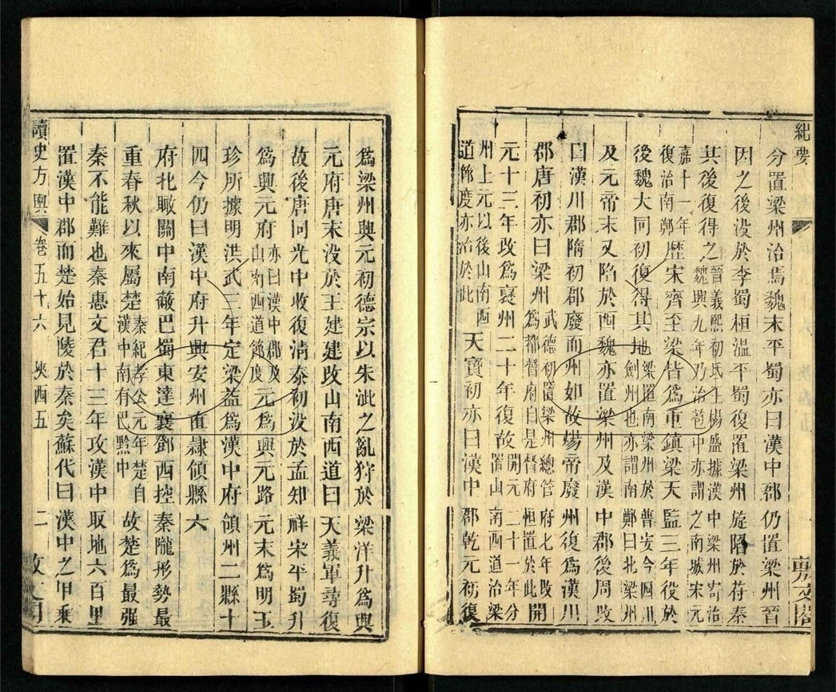 紀要
敷文閣
分置梁州治焉魏末平蜀亦曰漢中郡仍置梁州晉
因之後没於李蜀桓温平蜀復置梁州旋陷於苻秦
其後復得之
晉義熙初氐王楊盛據漢中梁州寄治
魏興九年乃治苞中亦謂之南城宋元
嘉十一年
復治南鄭
歷宋齊至梁皆爲重鎮梁天監三年没於
後魏大同初復得其地
梁置南梁州於普安今四川
劍州也亦謂南鄭曰北梁州
及元帝末又陷於西魏亦置梁州及漢中郡後周改
曰漢川郡隋初郡廢而州如故煬帝廢州復爲漢川
郡唐初亦曰梁州
武德初置梁州總管府七年改
爲都督府自是督府恒置於此
開
元十三年改爲襃州二十年復故
開元二十一年分
置山南西道治梁
州上元以後山南西
道節度亦治於此
天寶初亦曰漢中郡乾元初復
爲梁州興元初德宗以朱泚之亂狩於梁洋升爲興
元府唐末没於王建建改山南西道曰天義軍尋復
故後唐同光中收復清泰初没於孟知祥宋平蜀升
爲興元府
亦曰漢中郡及
山南西道節度
元爲興元路元末爲明玉
珍所據明洪武三年定梁益爲漢中府領州二縣十
四今仍曰漢中府升興安州直隸領縣六
府北瞰關中南蔽巴蜀東達襄鄧西控秦隴形勢最
重春秋以來屬楚
秦紀孝公元年楚自
漢中南有巴黔中
故楚爲最强
秦不能難也秦惠文君十三年攻漢中取地六百里
置漢中郡而楚始見陵於秦矣蘇代曰漢中之甲乗
讀史方輿 卷五十六 陝西五 二 敷文閣